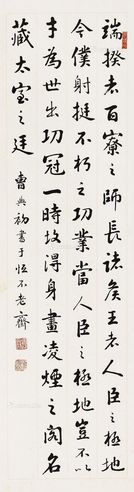 端揆者百寮之師長諸侯王者人臣之極地
今僕射挺不朽之功業當人臣之極地豈不以
才為世出功冠一時故得身畫凌煙之閣名
藏太室之廷
曹典初書于恒不老齋